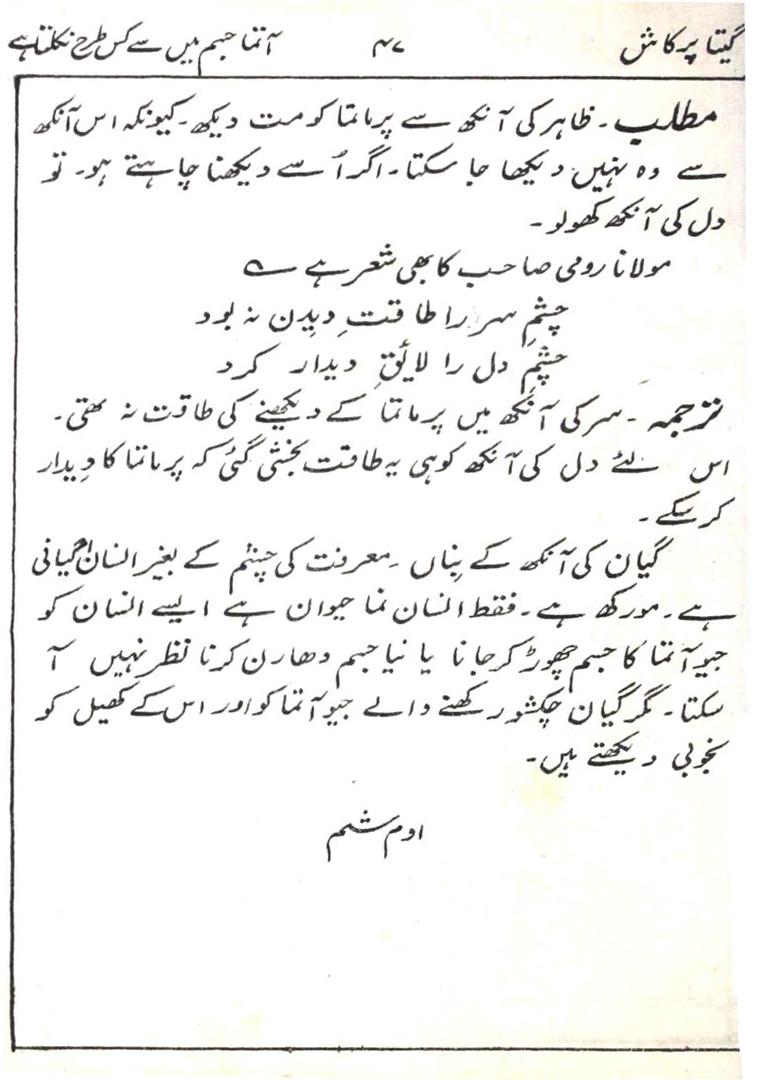 گیتا پرکاش ۴۷ آتما جسم میں سے کس طرح نکلتا ہے
مطلب۔ ظاہر کی آنکھ سے پرماتما کو مت دیکھ۔ کیونکہ اس آنکھ
سے وہ نہیں دیکھا جا سکتا۔ اگر اُسے دیکھنا چاہتے ہو۔ تو
دل کی آنکھ کھولو۔
مولانا رومی صاحب کا بھی شعر ہے ؎
چشمِ سر را طاقتِ دیدن نہ بود
چشمِ دل را لائقِ دیدار کرد
ترجمہ۔ سر کی آنکھ میں پرماتما کے دیکھنے کی طاقت نہ تھی۔
اس لئے دل کی آنکھ کو ہی یہ طاقت بخشی گئی کہ پرماتما کا دیدار
کر سکے۔
گیان کی آنکھ کے بِناں۔ معرفت کی چشم کے بغیر انسان اگیانی
ہے۔ مورکھ ہے۔ فقط انسان نما حیوان ہے ایسے انسان کو
جیو آتما کا جسم چھوڑ کر جانا یا نیا جسم دھارن کرنا نظر نہیں آ
سکتا۔ مگر گیان چکشو رکھنے والے جیو آتما کو اور اس کے کھیل کو
بخوبی دیکھتے ہیں۔
اوم شم